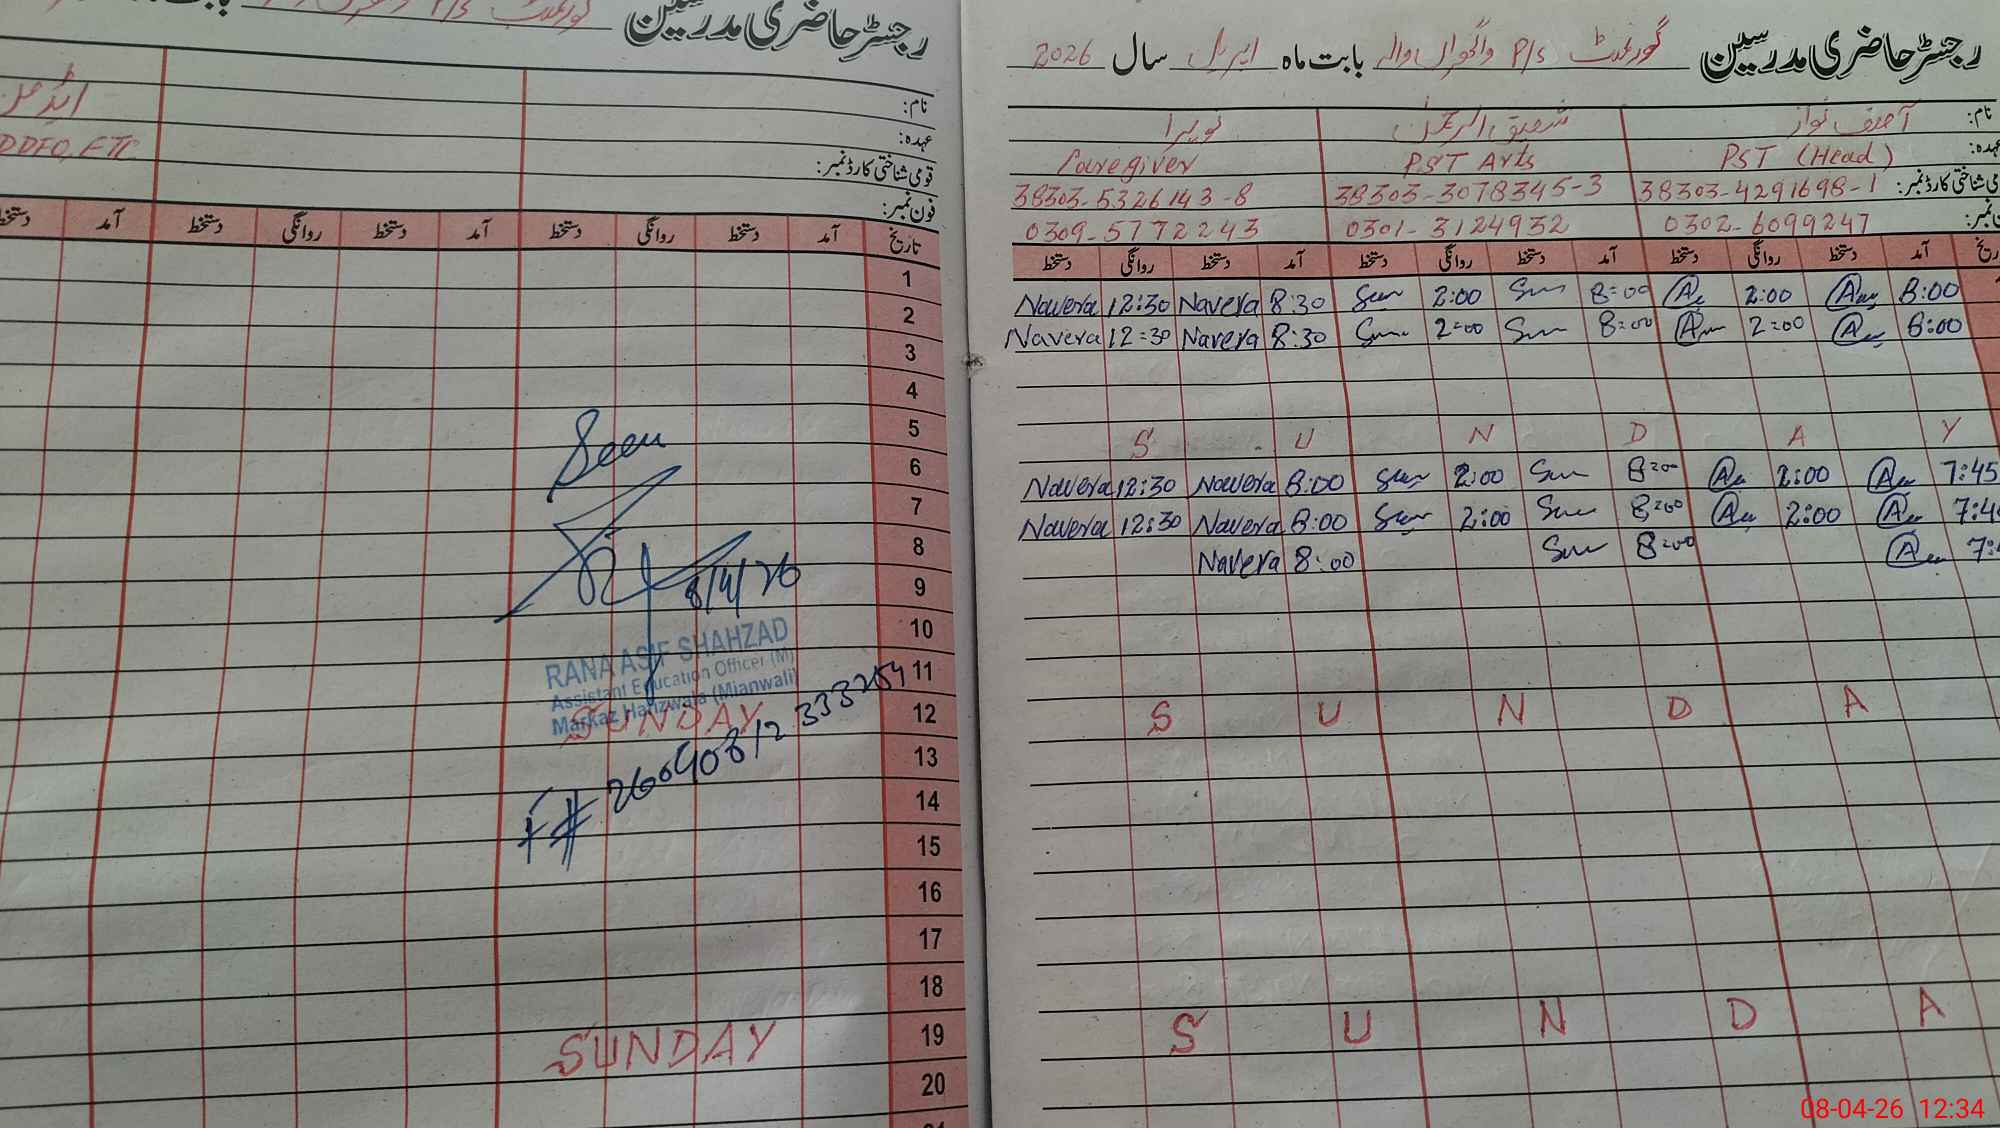 رجسٹر حاضری مدرسین گورنمنٹ P/S وانگواں والہ بابت ماہ اپریل سال 2026
نام: آصف نواز شفیق الرحمٰن نویرا
عہدہ: PST (Head) PST Arts Caregiver
قومی شناختی کارڈ نمبر: 38303-4291698-1 38303-3078345-3 38303-5326143-8
فون نمبر: 0302-6099247 0301-3124932 0309-5772243
تاریخ آمد دستخط روانگی دستخط آمد دستخط روانگی دستخط آمد دستخط روانگی دستخط
Navera 12:30 Navera 8:30 2:00 8:00 2:00 8:00
Navera 12:30 Navera 8:30 2:00 8:00 2:00 8:00
S U N D A Y
Navera 12:30 Navera 8:00 2:00 8:00 2:00 7:45
Navera 12:30 Navera 8:00 2:00 8:00 2:00
Navera 8:00 8:00
S U N D A
S U N D A
رجسٹر حاضری مدرسین
P/S
نام:
عہدہ:
DDEO, ETC
قومی شناختی کارڈ نمبر:
فون نمبر:
تاریخ آمد دستخط روانگی دستخط آمد دستخط روانگی دستخط آمد دستخط
1
2
3
4
5
6
7
8
9
10
11
12
13
14
15
16
17
18
19
20
21
Seen
8/4/26
RANA ASIF SHAHZAD
Assistant Education Officer (M)
Markaz Hafizwala (Mianwali)
SUNDAY
F# 26040812333254
SUNDAY
08-04-26 12:34